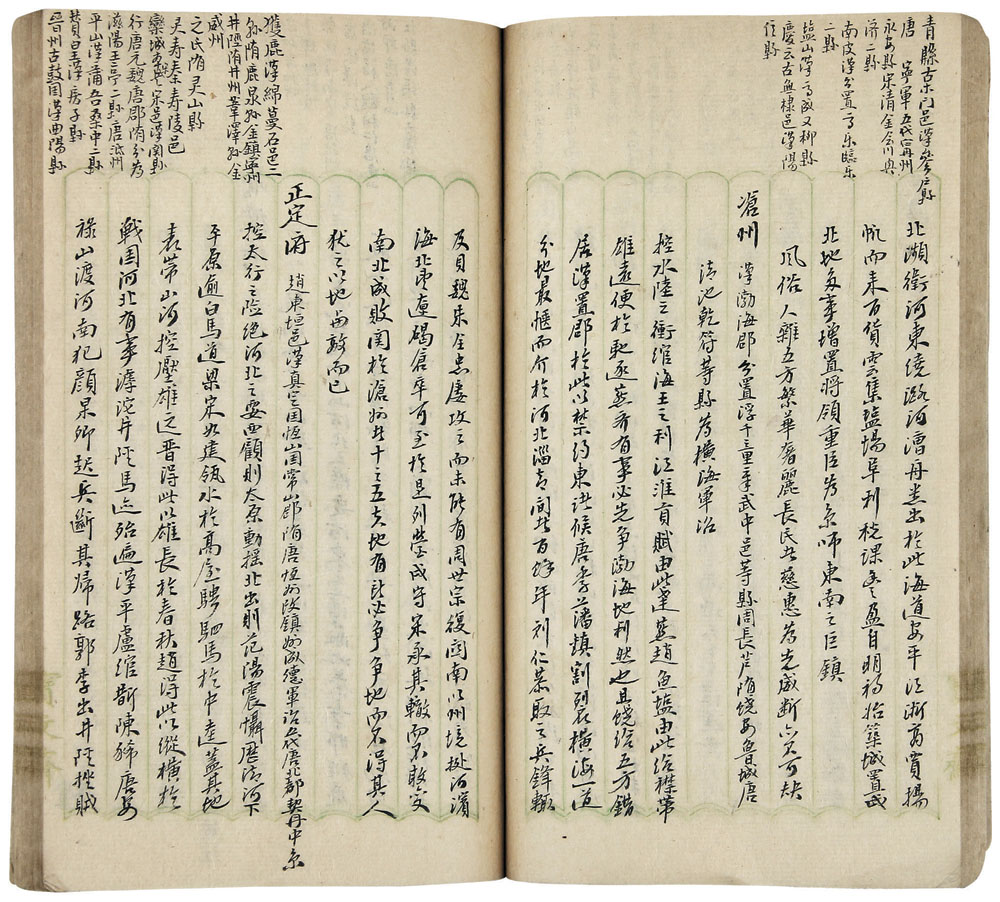 青縣古木門邑漢參戶縣
唐　寧軍五代再州
永安縣宋清金會川與
濟二縣
南皮漢分置高樂臨樂
二縣
鹽山漢高成又柳縣
慶云古無棣邑漢陽
信縣
北瀕衛河東繞潞河漕舟悉出於此海道安平江浙商賈揚
帆而來百貨雲集鹽場阜利稅課充盈自明初始築城置戍
北地多事增置將領重臣為京師東南之巨鎮
風俗人雜五方繁華奢麗長民者慈惠為先威斷亦不可缺
滄州　漢渤海郡分置浮千童章武中邑等縣周長芦隋饒安魯城唐
清池乾符等縣為橫海軍治
控水陸之衝綰海王之利江淮貢賦由此達燕趙魚鹽由此給襟帶
雄遠便於馳逐燕齊有事必先爭渤海地利然也且饒給五方錯
居漢置郡於此以禁約東諸侯唐季藩鎮割裂橫海一道
分地最愜而介於河北淄青間者百餘年劉仁恭取之兵鋒輒
及貝魏朱全忠屢攻之而未能有周世宗復關南以州境挺河濱
海北柬連碣信平可至於是列營戍守宋承其轍而不敢變
南北成敗關於滄州者十之五夫地有所必爭爭地而不得其人
猶之以地與敵而已
正定府　趙東垣邑漢真定国恆山国常山郡隋唐恆州改鎮州成德軍治五代唐北都契丹中京
控太行之险絕河北之要西顧則太原動搖北出則范陽震懾歷清河下
平原逾白馬道梁宋如建瓴水於高屋騁駟馬於中逵蓋其地
表常山河控壓雄远晉得此以雄長於春秋趙得此以縱橫於
戰国河北有事滹沱井陘馬迹殆遍漢平盧綰斬陳豨唐安
祿山渡河南犯顏杲卿起兵斷其歸路郭李出井陘挫賊
獲鹿漢綿蔓石邑二
縣隋鹿泉縣金鎮寧州
井陘隋井州葦澤縣金
威州
之氏隋灵山縣
灵寿秦寿陵邑
欒城宋邑漢関縣
行唐元魏唐郡隋分為
滋陽王亭二縣唐泜州
平山漢蒲吾桑中二縣
贊皇漢房子縣
晉州古鼓国漢曲陽縣